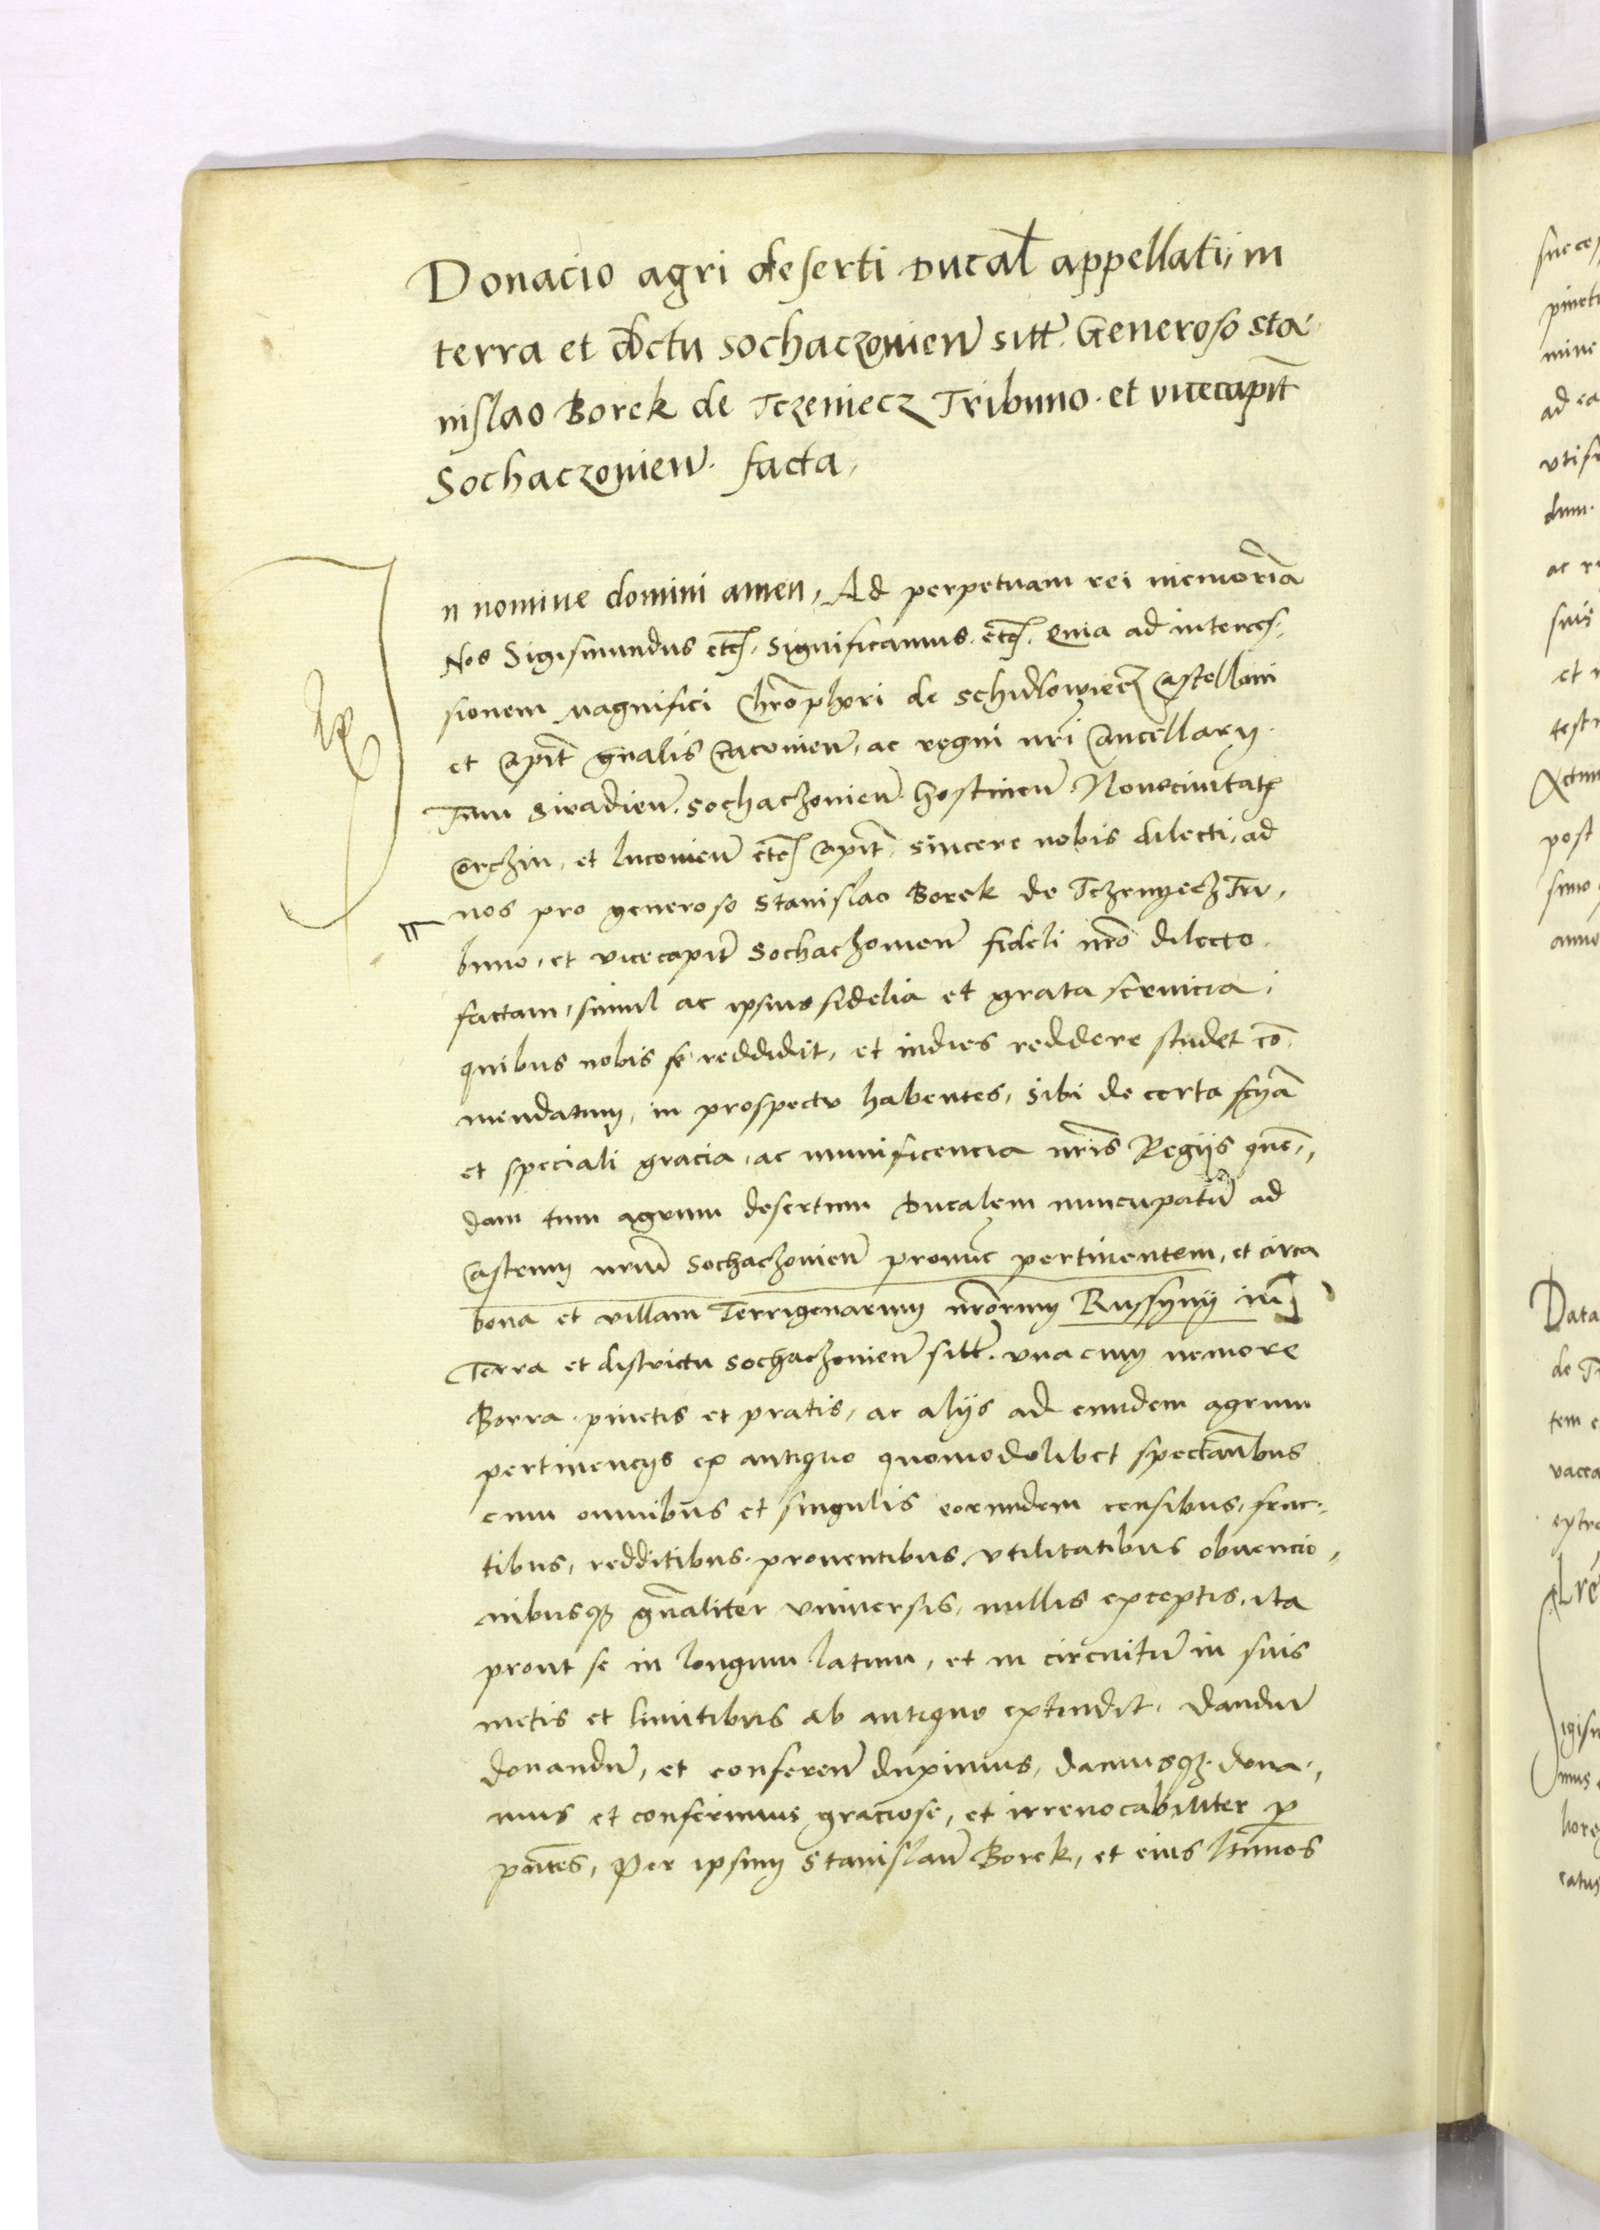 Donacio agri deserti Ducal̄ appellati, in
terra et dictu Sochaczovien̄ sitt̄. Generoso Sta-
nislao Borek de Tczeniecz Tribuno. et vicecapit̄
Sochaczovien̄. facta,
In nomine domini amen, Ad perpetuam rei memoriā
Nos Sigismundus etc̄. Significamus. etc̄. Quia ad interces-
sionem Magnifici Chrōphori de Schidlowiecz Castellani
et Capit̄ gn̄alis Cracovien̄, ac regni nr̄i Cancellarij.
Tum Siradien̄. Sochaczovien̄. Gostinen̄. Novecivitatis
Corczin. et Lucovien̄ etc̄ Capit̄. sincere nobis dilecti, ad
nos pro generoso Stanislao Borek de Tczenyecz Tri-
buno. et vicecapit̄ Sochaczovien̄ fideli nr̄o dilecto.
factam, simul ac ipsius fidelia et grata servicia,
quibus nobis se reddidit, et indies reddere studet cō-
mendatum, in prospectu habentes, Sibi de certa scȳa
et speciali gracia. ac munificencia nr̄is Regijs quen-
dam tum agrum desertum Ducalem nuncupatū ad
Castrum nrūm Sochaczovien̄ pronūc pertinentem, et circa
bona et villam Terrigenarum nr̄orum Russynij in
Terra et districtu Sochaczovien̄ sitt̄. vna cum nemore
Borra. pinetis et pratis, ac alijs ad eundem agrum
pertinencijs ex antiquo quomodolibet spectan̄bus
cum omnibus et singulis eorundem censibus, fruc-
tibus, redditibus. proventibus, vtilitatibus obvencio-
nibusq; gn̄aliter vniversis, nullis exceptis, ita
prout se in longum. latum, et in circuitū in suis
metis et limitibus ab antiquo extendit. dandum̄
donandū, et conferen̄ duximus, Damusq; dona-
mus et conferimus graciose, et irrevocabiliter p
pn̄tes, Per ipsum Stanislaū Borek, et eius ltīmos